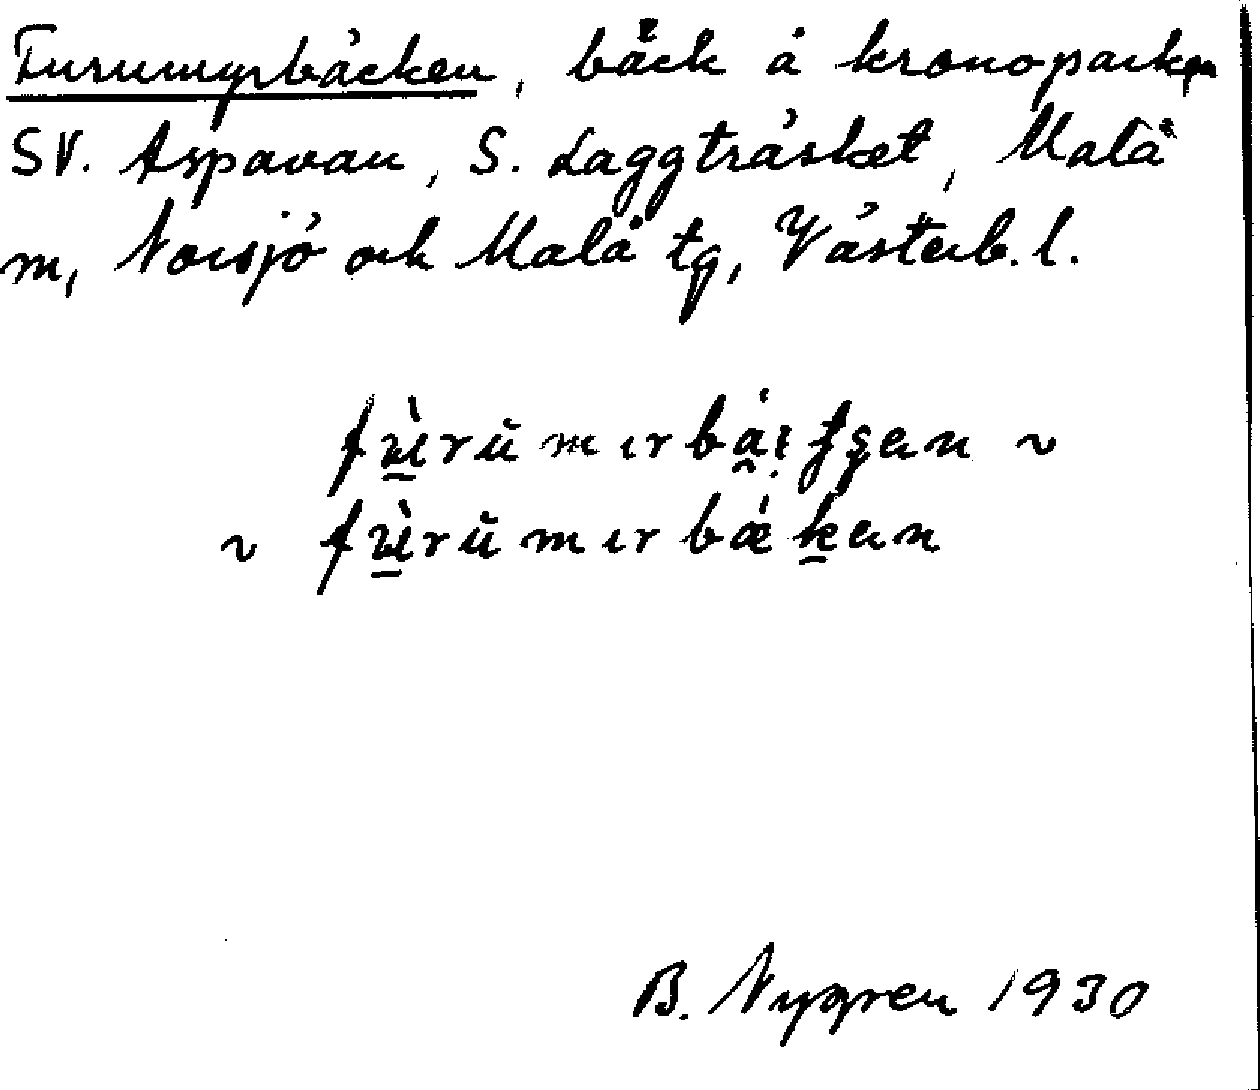 Furumyrbäcken, bäck å kronoparken
SV. Aspavan, S. Laggträsket, Malå
m, Norsjö och Malå tg, Västerb. l.
~ fùrŭmırbǽkan
B. Nygren 1930